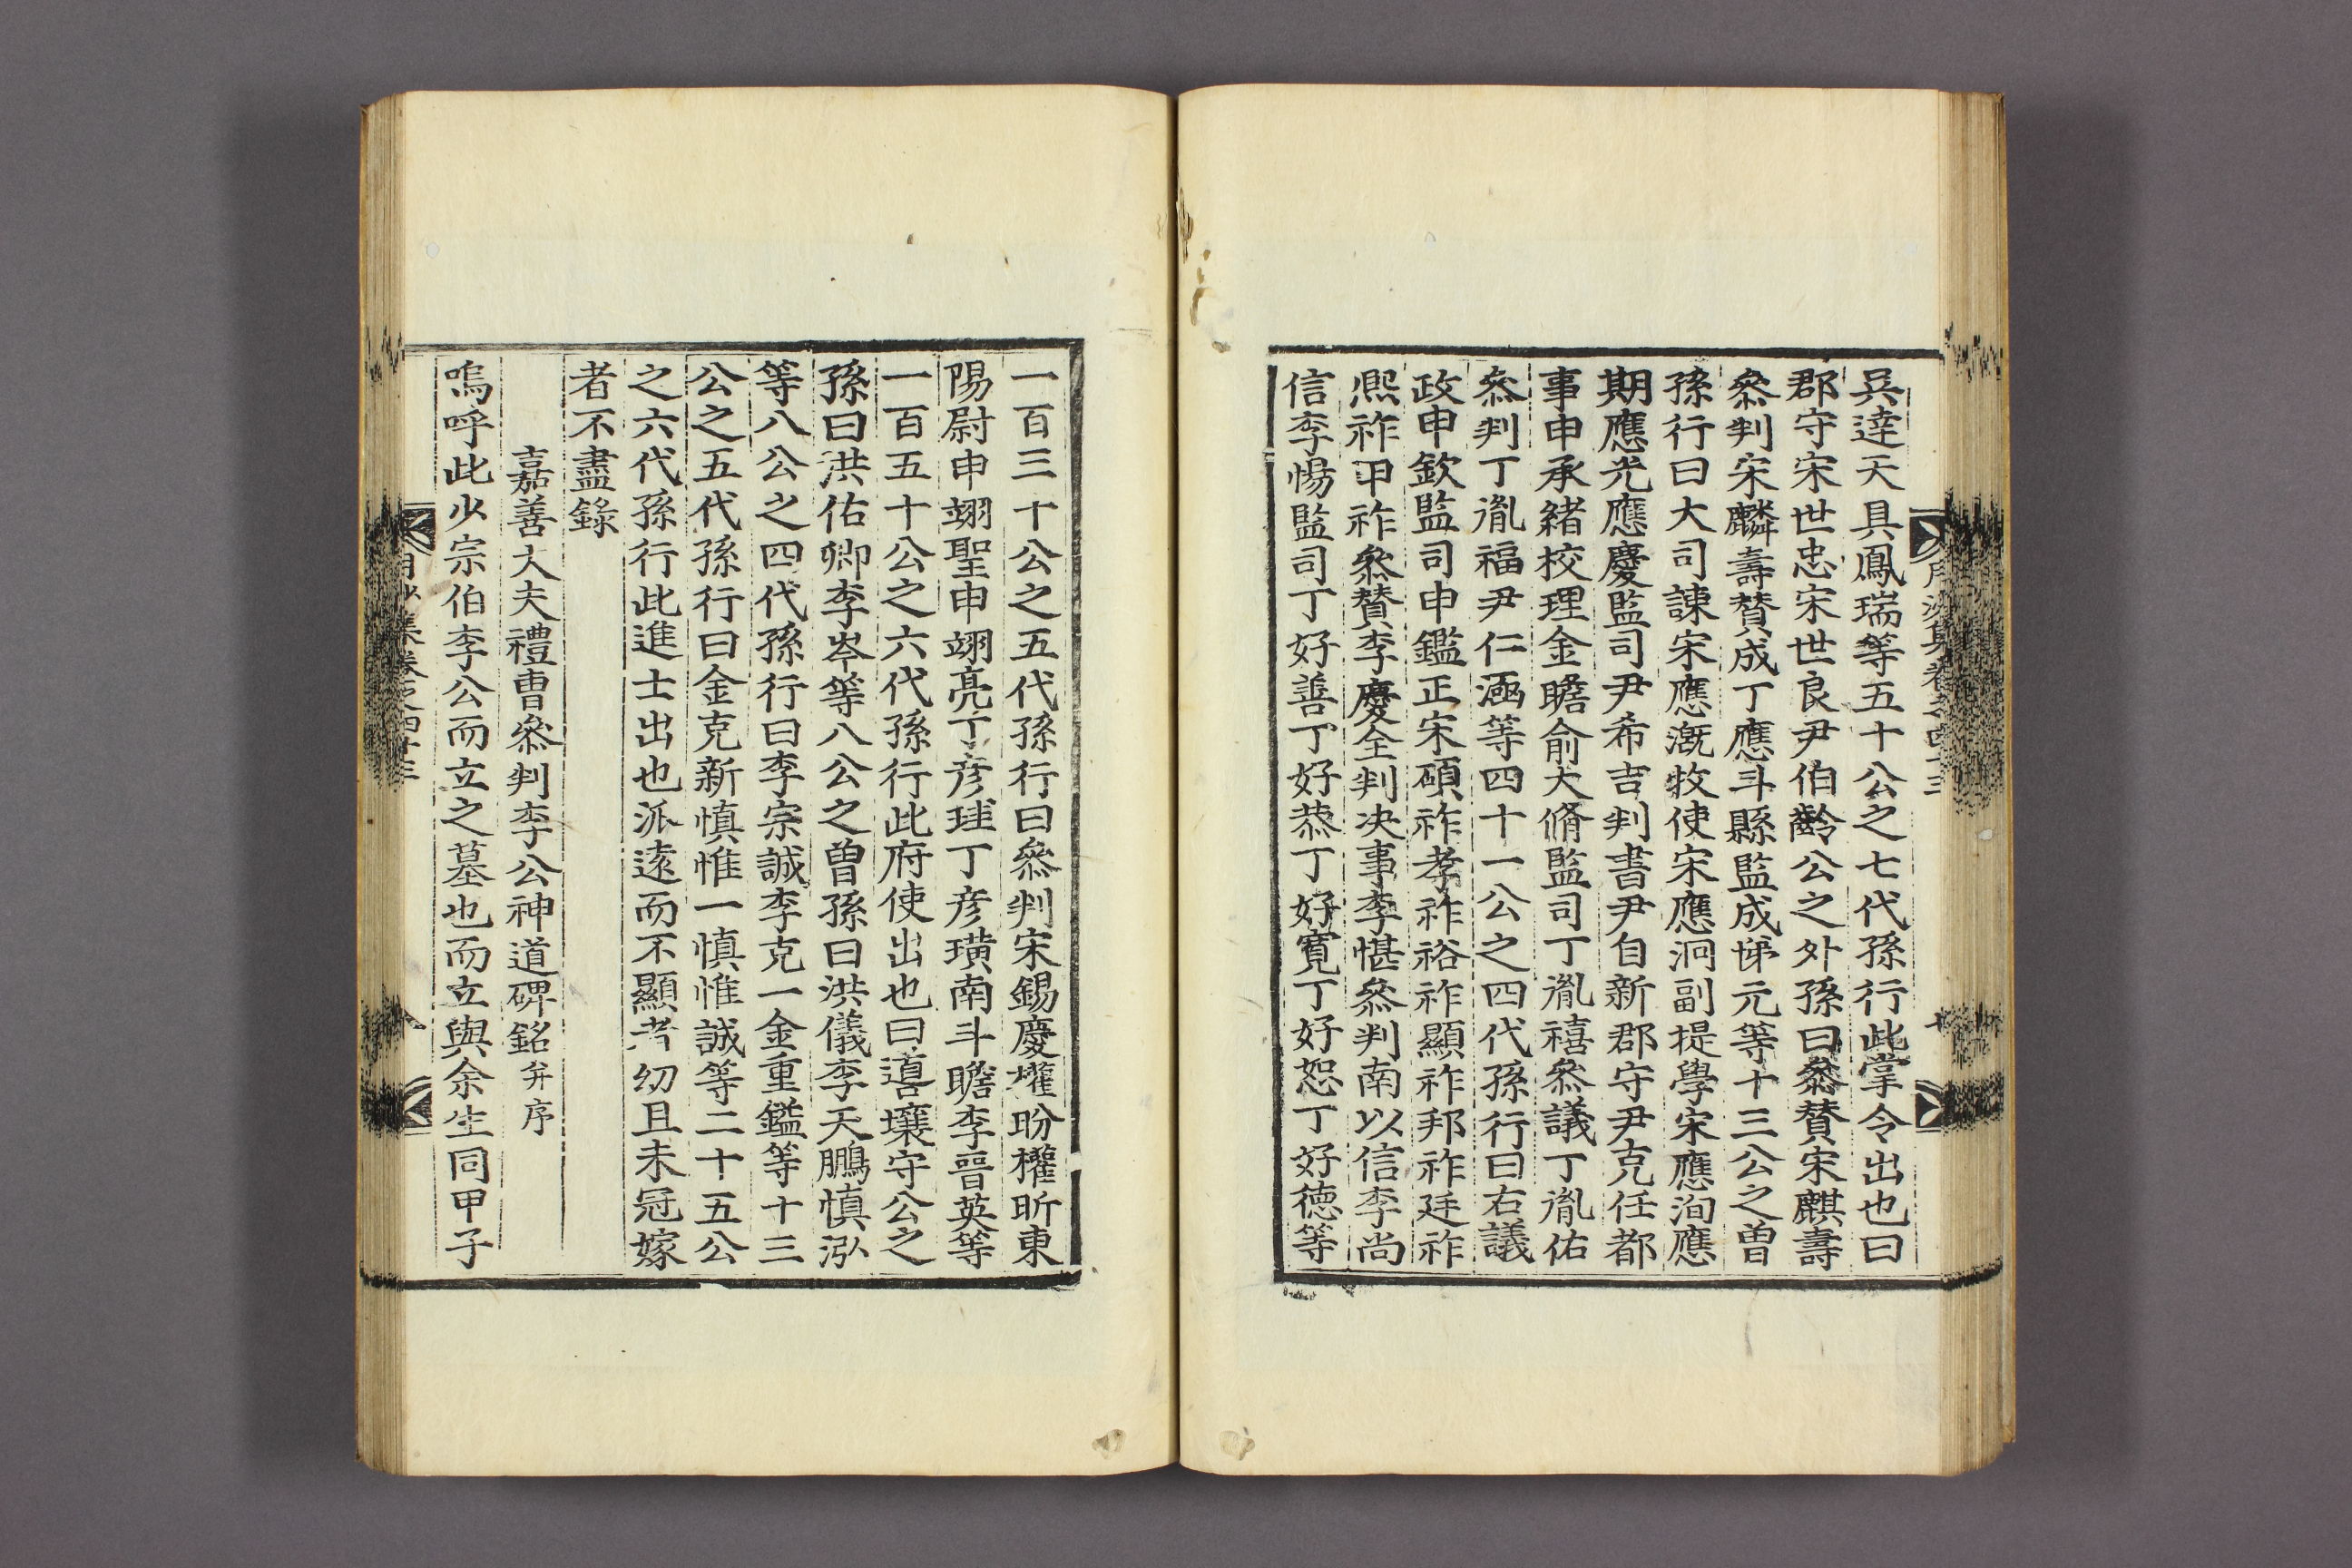 月沙集卷之四十三
兵逹天具鳳瑞等五十公之七代孫行此掌令出也曰
郡守宋世忠宋世良尹伯齡公之外孫曰叅賛宋麒壽
叅判宋麟壽賛成丁應斗縣監成悌元等十三公之曾
孫行曰大司諫宋應漑牧使宋應泂副提學宋應洵應
期應光應慶監司尹希吉判書尹自新郡守尹克任都
事申承緖校理金瞻俞大脩監司丁胤禧叅議丁胤佑
叅判丁胤福尹仁涵等四十一公之四代孫行曰右議
政申欽監司申鑑正宋碩祚孝祚裕祚顯祚邦祚廷祚
熈祚甲祚叅賛李慶全判决事李愖叅判南以信李尚
信李愓監司丁好善丁好恭丁好寬丁好恕丁好德等
七
一百三十公之五代孫行曰叅判宋錫慶權盼權昕東
陽尉申翊聖申翊亮丁彦珪丁彦璜南斗瞻李晉英等
一百五十公之六代孫行此府使出也曰遒壤守公之
孫曰洪佑卿李岑等八公之曽孫曰洪儀李天鵬愼泓
等八公之四代孫行曰李宗誠李克一金重鎰等十三
公之五代孫行曰金克新愼惟一愼惟誠等二十五公
之六代孫行此進士出也派逺而不顯者幼且未冠嫁
者不盡錄
嘉善大夫禮曺叅判李公神道碑銘并序
嗚呼此少宗伯李公而立之墓也而立與余生同甲子
月沙集卷之四十三
八